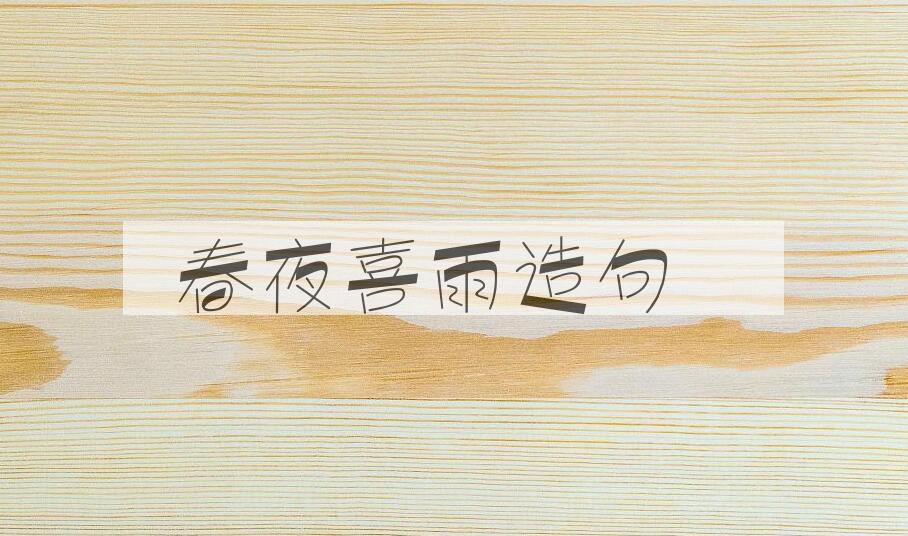 春夜喜雨造句